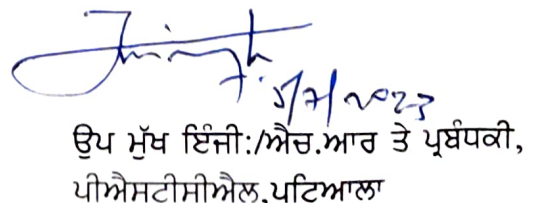 5/7/2023
ਉਪ ਮੁੱਖ ਇੰਜੀ:/ਐਚ.ਆਰ ਤੇ ਪ੍ਰਬੰਧਕੀ,
ਪੀਐਸਟੀਸੀਐਲ,ਪਟਿਆਲਾ